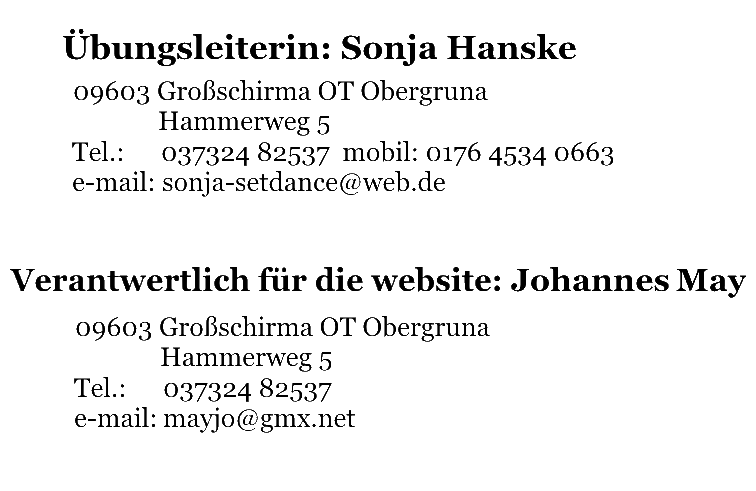 Übungsleiterin: Sonja Hanske
09603 Großschirma OT Obergruna
Hammerweg 5
Tel.: 037324 82537 mobil: 0176 4534 0663
e-mail: sonja-setdance@web.de
Verantwertlich für die website: Johannes May
09603 Großschirma OT Obergruna
Hammerweg 5
Tel.: 037324 82537
e-mail: mayjo@gmx.net